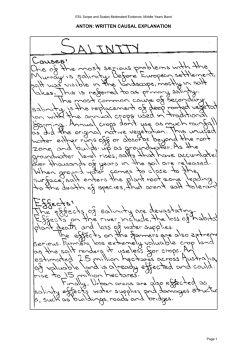 ESL Scope and Scales Moderated Evidence: Middle Years Band
ANTON: WRITTEN CAUSAL EXPLANATION
SALINITY
Causes:
One of the most serious problems with the
Murray is salinity. Before European settlement
salt was visible in the landscape, mostly in salt
lakes. This is referred to as primary salinity.
The most common cause of secondary
salinity is the replacement of deep rooted vegetat-
ion with the annual crops used in traditional
farming. Annual crops don't use as much rainfall
as did the original native vegetation. This unused
water either runs off or absorbs beyond the root
zone and builds up as groundwater. As the
groundwater level rises, salts that have accumulated
over thousands of years in the soil are released.
When ground water comes to close to the
surface salt enters the plant root zone leading
to the death of species, that arent salt tolerant.
Effects:
The effects of salinity are devastating.
Effects on the river include the loss of habitat
plant death and loss of water supplies.
The effects on the farmers are also extremely
serious. Farmers lose extremely valuable crop land
as the salt renders it useless for crops. An
estimated 2.5 million hectares across Australia
of valuable land is already effected and could
rise to 15 million hectares.
Finally, Urban areas are also effected as
salinity effects water supplies and damages structure
s, such as buildings, roads and bridges.
Page 1